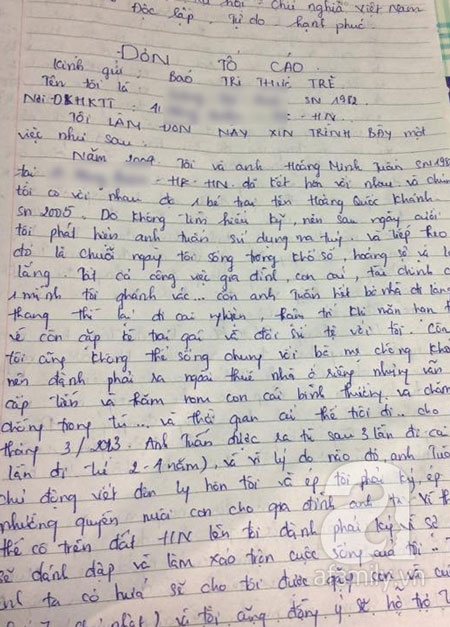 hội chủ nghĩa Việt Nam
Độc lập, Tự do, hạnh phúc.
ĐƠN TỐ CÁO
Kính gửi: BÁO TRI THỨC TRẺ
Tên tôi là SN 1982
Nơi ĐKHKTT : - HN.
TÔI LÀM ĐƠN NÀY XIN TRÌNH BÀY một
việc như sau:
Năm Tôi và anh Hoàng Minh Tuấn SN 198
tại - HN. đã kết hôn với nhau và chún
tôi có với nhau 1 bé trai tên Hoàng Quốc Khánh
SN 2005. Do không tìm hiểu kỹ, nên sau ngày cưới
tôi phát hiện anh Tuấn sử dụng ma túy. và tiếp theo
đó là chuỗi ngày tôi sống trong khổ sở, hoảng sợ vì l
lắng. Tất cả công việc gia đình, con cái, tài chính
1 mình tôi ghánh vác... còn anh Tuấn hết bỏ nhà đi lang
thang thì lại đi cai nghiện, thậm trí khi mãn hạn t
về còn cặp kè trai gái và đối sử tệ với tôi. Còn
tôi cũng không thể sống chung với bố mẹ chồng
nên đành phải ra ngoài thuê nhà ở riêng nhưng vẫn
cấp tiền và thăm nom con cái bình thường, và chăm
chồng trong tù... và thời gian cứ thế trôi đi.. cho
tháng 3/2013. Anh Tuấn được ra tù sau 3 lần đi cai
lần đi từ 2-4 năm), và vì lý do nào đó, anh Tuấ
chủ động viết đơn ly hôn tôi và ép tôi phải ký, ép
nhường quyền nuôi con cho gia đình anh ta. Vì th
thế cô trên đất HN lên tôi đành phải ký vì sợ
sẽ đánh đập và làm xáo trộn cuộc sống của tôi..
nh ta có hứa sẽ cho tôi được gặp con và
nhật) và tôi cũng đồng ý sẽ hỗ trợ
afamily.vn